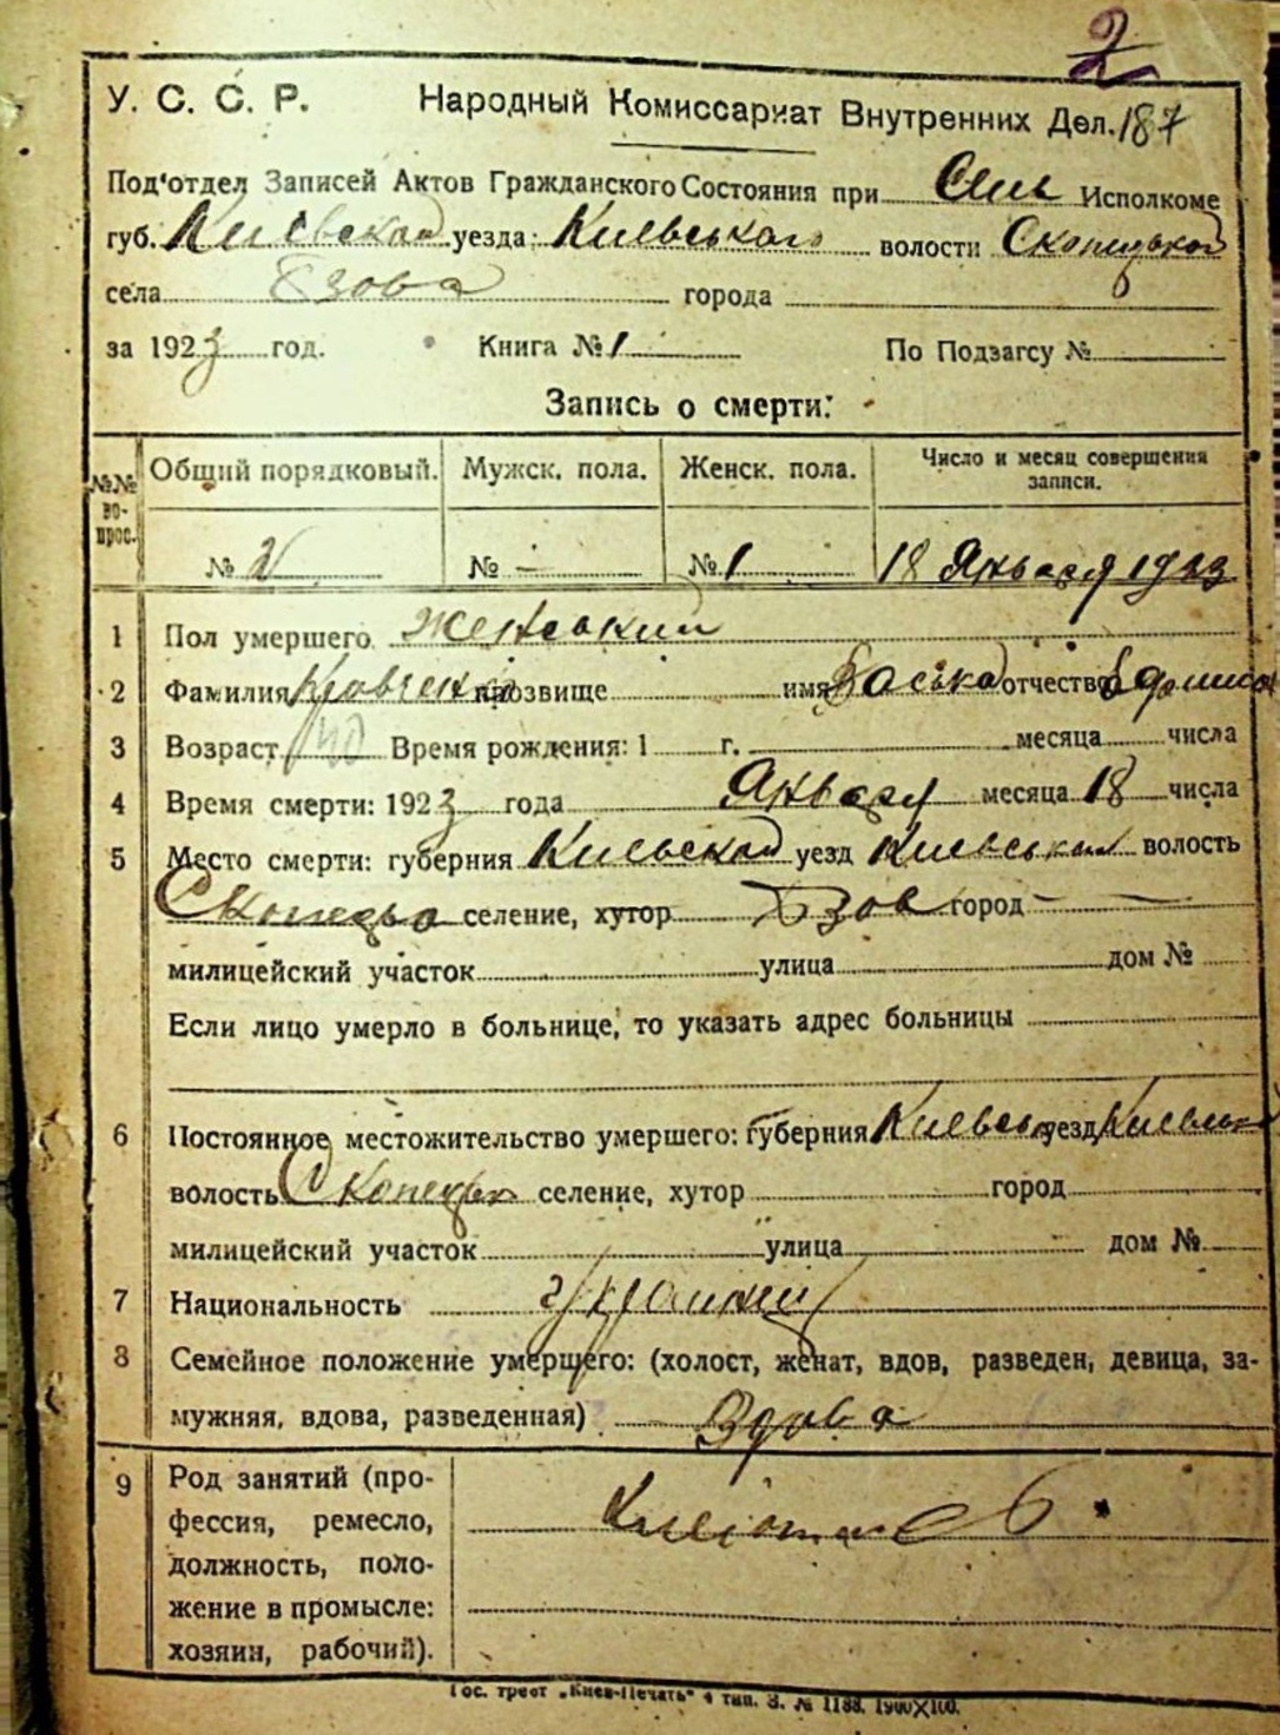 2
У. С. С. Р. Народный Комиссариат Внутренних Дел. 187
Под'отдел Записей Актов Гражданского Состояния при Сель Исполкоме
губ. Киевской уезда: Киевського волости
села Бзова города
за 1923 год. Книга № 1 По Подзагсу №
Запись о смерти:
№№ вопрос. Общий порядковый. Мужск. пола. Женск. пола. Число и месяц совершения
записи.
№ 2 № - № 1 18 Января 1923
1 Пол умершего Женський
2 Фамилия Кравченко прозвище имя отчество
3 Возраст Время рождения: 1 г. месяца числа
4 Время смерти: 1923 года Января месяца 18 числа
5 Место смерти: губерния Киевской уезд Киевський волость
селение, хутор Бзов город
милицейский участок улица дом №
Если лицо умерло в больнице, то указать адрес больницы
6 Постоянное местожительство умершего: губерния Киевськ уезд
волость селение, хутор город
милицейский участок улица дом №
7 Национальность
8 Семейное положение умершего: (холост, женат, вдов, разведен, девица, за-
мужняя, вдова, разведенная) Вдова
9 Род занятий (про-
фессия, ремесло,
должность, поло-
жение в промысле:
хозяин, рабочий).
Гос. трест „Киев-Печать" 4 тип. З. № 1188. 1900×100.